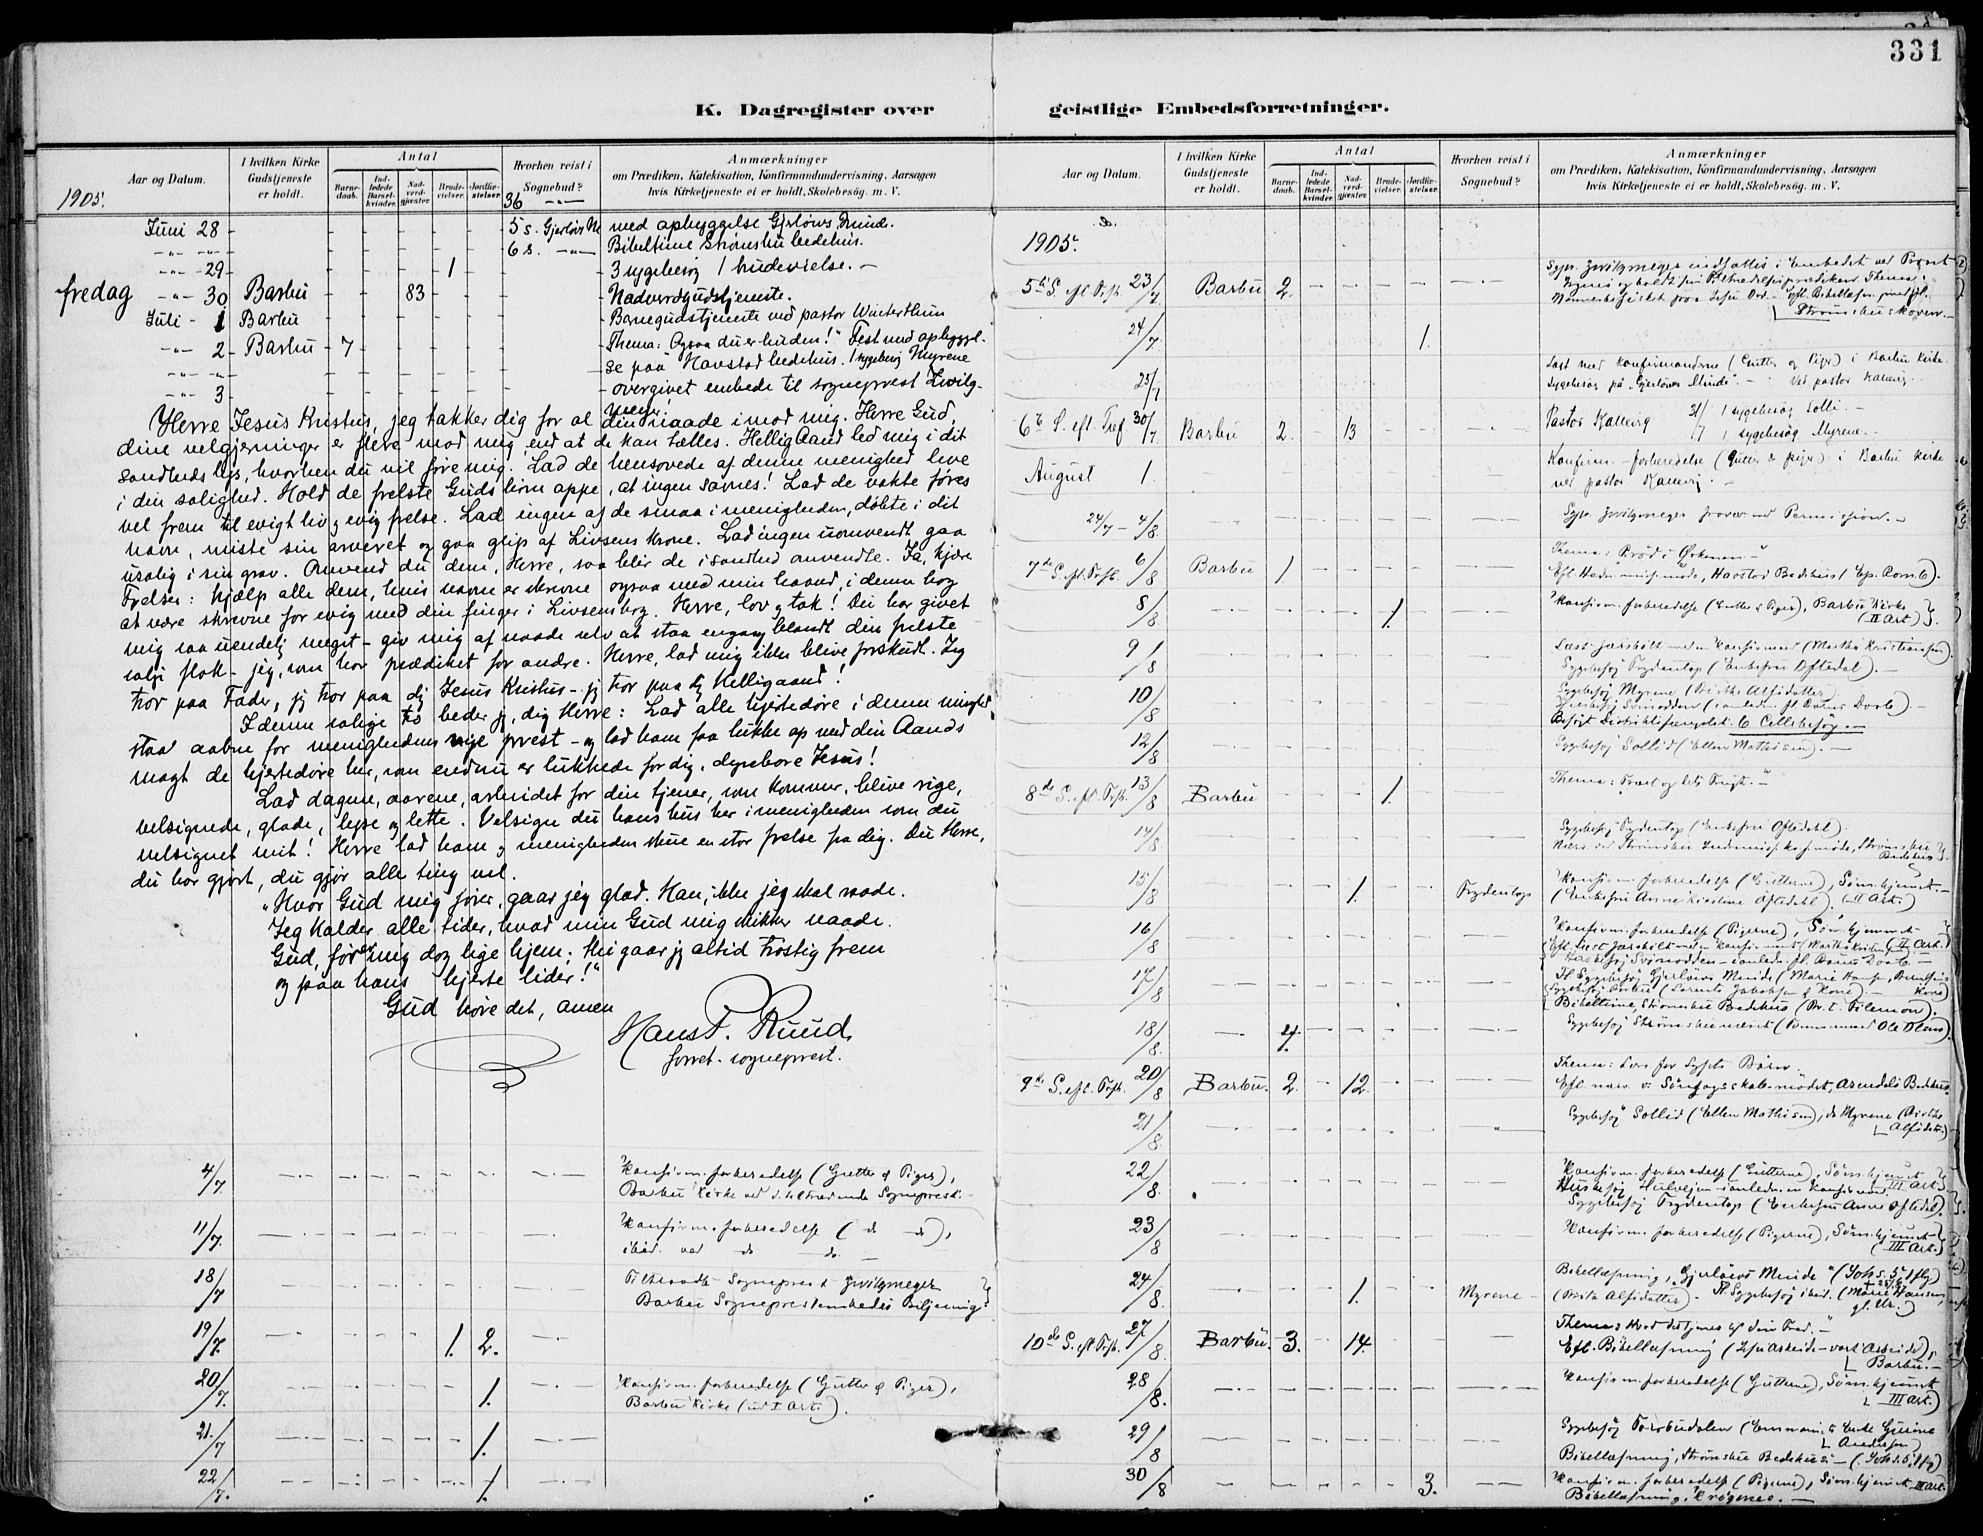 331
K. Dagregister over geistlige Embedsforretninger.
Aar og Datum.
I hvilken Kirke Gudstjeneste er holdt.
Antal
Barnedaab.
Indledede Barselkvinder.
Nadverdgjæster.
Brudevielser.
Jordfæstelser.
Hvorhen reist i Sognebud?
Anmærkninger
om Prædiken, Katekisation, Konfirmandundervisning, Aarsagen
hvis Kirketjeneste ei er holdt, Skolebesøg. m. V.
1905.
36 -"-
Juni 28 5 s. Gjerløvs M med opbyggelse Gjerløws Minde.
-"- -"- 6 s. -"- Bibeltime Strømsbu bedehus.
-"- 29 1 3 sygebesøg 1 brudevielse.
fredag -"- 30 Barbu 83 Nadverdgudstjeneste.
Juli 1 Barbu Barnegudstjeneste ved pastor Winterthun
-"- 2 Barbu 7 Thema: Ogsaa du er buden! Fest med opbyggel-
-"- -"- se paa Havstad bedehus. 1 sygebesøg Myrene
-"- 3 overgivet embede til sogneprest Zwilg-
meyer!
Herre Jesus Kristus, jeg takker dig for al din naade imod mig. Herre Gud,
dine velgjerninger er flere mod mig, end at de kan tælles. Hellig Aand led mig i dit
sandheds lys, hvorhen du vil føre mig. Lad de hensovede af denne menighed leve
i din salighed. Hold de frelste Guds børn oppe, at ingen savnes! Lad de vakte føres
vel frem til evigt liv, evig frelse. Lad ingen af de smaa i menigheden, døbte i dit
navn, miste sin arveret og gaa glip af Livsens krone. Lad ingen uomvendt gaa
usalig i sin grav. Omvend du dem, Herre, saa blir de i sandhed omvendte. Ja, kjære
Frelser: hjælp alle dem, hvis navne er skrevne ogsaa med min haand, i denne bog
at være skrevne for evig med din finger i Livsens bog. Herre, lov og tak! Du har givet
mig saa uendelig meget - giv mig af naade selv at staa engang blandt din frelste
salige flok - jeg, som har prædiket for andre. Herre, lad mig ikke blive forskudt. Jeg
tror paa Fader, jeg tror paa dig Jesus Kristus - jeg tror paa dig Helligaand!
I denne salige tro beder jeg, dig Herre: Lad alle hjertedøre i denne menighed
staa aabne for menighedens nye prest - og lad ham faa lukke op med din Aands
magt de hjertedøre her, som endnu er lukkede for dig, dyrebare Jesus!
Lad dagene, aarene, arbeidet for din tjener, som kommer, blive rige,
velsignede, glade, lyse og lette. Velsign du hans hus her i menigheden som du
velsignet mit! Herre lad ham og menigheden skue en stor frelse fra dig. Du Herre,
du har gjort, du gjør alle ting vel.
"Hvor Gud mig fører, gaar jeg glad. Han, ikke jeg skal raade.
Jeg kalder alle tider, hvad min Gud mig skikker naade.
Gud, før mig dog lige hjem; thi gaar jeg altid trøstig frem
og paa hans hjerte lider!"
Gud høre det, amen
Hans P. Ruud,
forret. sogneprest.
4/7 Konfirm. forberedelse (Gutter & Piger),
Barbu Kirke ved d. tiltrædende Sogneprest.
11/7. Konfirm. forberedelse (do do),
ibid. ved do do
18/7 Tiltraadte Sogneprest Zwilgmeyer
Barbu Sogneprestembedes Betjening.
19/7. 1. 2.
20/7. 1. Konfirm. forberedelse (Gutter & Piger),
Barbu Kirke (ud I Art.).
21/7 1.
22/7. 1.
Aar og Datum.
I hvilken Kirke Gudstjeneste er holdt.
Antal
Barnedaab.
Indledede Barselkvinder.
Nadverdgjæster.
Brudevielser.
Jordfæstelser.
Hvorhen reist i Sognebud?
Anmærkninger
om Prædiken, Katekisation, Konfirmandundervisning, Aarsagen
hvis Kirketjeneste ei er holdt, Skolebesøg. m. V.
1905.
5te S. eft. Trft. 23/7 Barbu 2. Sgpr. Zwilgmeyer indsattes i Embedet ved Provst
og holdt sin Tiltrædelsesprædiken Thema:
Menneskefiskeri paa Jesu Ord. - Eft. Bibellæsn.
Strømsbuskoven.
24/7 1.
25/7 Læst med Konfirmanderne (Gutter og Piger) i Barbu Kirke.
Sygebesøg på "Gjerløws Minde". - Ved pastor Kallevig.
6te S. eft. Tref. 30/7 Barbu 2. 13 Pastor Kallevig 31/7 1 sygebesøg Solli.
1 sygebesøg Myrene.
August 1 Konfirm. forberedelse (Gutter & piger) i Barbu kirke
ved pastor Kallevig.
24/7 - 4/8 Sgpr. Zwilgmeyer fravær. med Permission.
7de S. eft. Trft. 6/8 Barbu 1 Thema: Brød i Ørkenen.
Eft. Heden. miss. møde, Havstad Bedehus (Ep. Rom. 6).
8/8 1. Konfirm. forberedelse (Gutter & Piger), Barbu Kirke
(II Art.)
9/8 Læst særskilt med en Konfirmant (Martha Kristiansen).
Sygebesøg Frydentop (Enkefru Oftedal).
10/8 Sygebesøg Myrene (Birthe Alfsdatter)
Besøgt Distriktsfængslet: 6 Cellebesøg.
12/8 Sygebesøg Sollid (Ellen Mathisen).
8de S. eft. Trft. 13/8 Barbu 1. Thema: Træet og dets Frugt.
14/8 Sygebesøg Frydentop (Enkefru Oftedahl).
Strømsbu Indremiss. møde, Strømsbu
Bedehus
15/8 1. Frydentop Konfirm. forberedelse (Gutterne), Sømshjemmet.
(Enkefru Anne Kirstine Oftedahl). (II Art.)
16/8 Konfirm. forberedelse (Pigerne), Søm. hjemmet
(II Art.)
17/8 Sygebesøg Gjerløws Minde (Marie Hansen,
Bibeltime, Strømsbu Bedehus (Br. t. Filemon).
18/8. 4. Sygebesøg Strømsbuneset (Tømmermand Ole Olsen).
9de S. eft. Trft. 20/8 Barbu. 2. 12. Thema: Lov for Lysets Børn
Eft. nærv. v. Søndagsskolemødet, Arendals Bedehus.
21/8. Sygebesøg Sollid (Ellen Mathisen), do Myrene (Birthe
Alfsdatter)
22/8. Konfirm. forberedelse (Gutterne), Søm. hjemmet
III Art.
Sygebesøg Frydentop (Enkefru Anne Oftedal).
23/8 Konfirm. forberedelse (Pigerne), Søm. hjemmet
(III Art.)
24/8. 1. Myrene Bibellæsning, "Gjerløws Minde" (Joh. 5, 1 flg)
(Berta Alfsdatter). - Sygebesøg ibid. (Marie Hansen,
10de S. eft. Trft. 27/8. Barbu. 3. 14. Thema: Hvad det tjener til din Fred.
Eft. Bibellæsning (Jesu Arbeide - vort Arbeide),
Barbu.
28/8. Konfirm. forberedelse (Gutterne), Søm. hjemmet
III Art.)
29/8 Sygebesøg Torsbudalen (Enke Gurine
Andersen)
Bibellæsning, Strømsbu Bedehus - (Joh. 5, 1 flg)
30/8 3. Konfirm. forberedelse (Pigerne), Søm. hjemmet III Art.
Bibellæsning, Krøgenes.